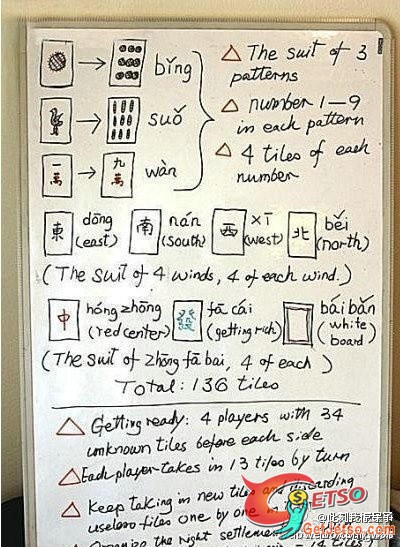 bǐng
The suit of 3
patterns
suǒ
number 1-9
in each pattern
一萬 九萬 wàn
4 tiles of each
number
東 dōng 南 nán 西 xī 北 běi
(east) (south) (west) (north)
(The suit of 4 winds, 4 of each wind.)
中 hóng zhōng 發 fā cái bái bǎn
(red center) (getting rich) (white
board)
(The suit of zhōng fā bai, 4 of each)
Total: 136 tiles
Getting ready: 4 players with 34
unknown tiles before each side
Each player takes in 13 tiles by turn
Keep taking in new tiles and discarding
useless tiles one by one in
the right settlement
tiles
SETSO
GetJetso.com